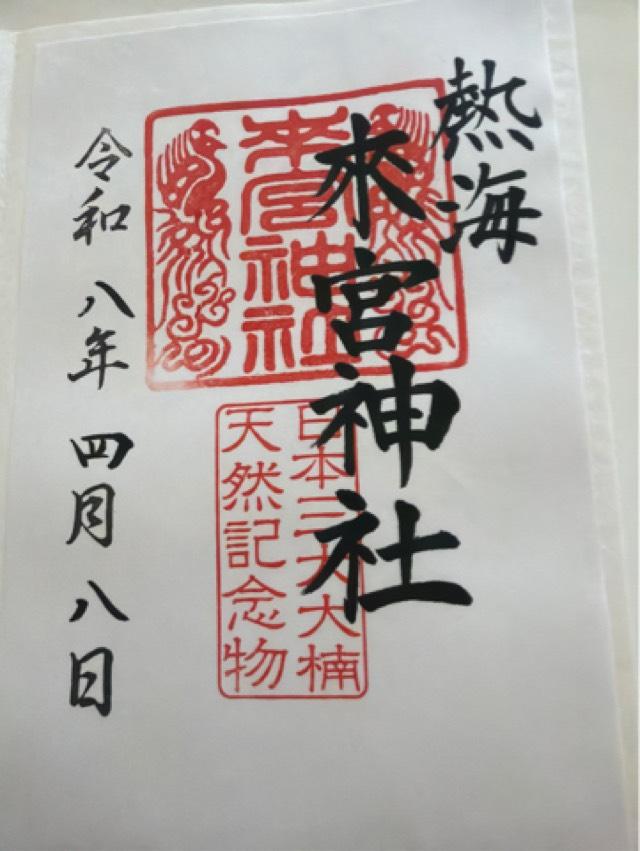 熱海
來宮神社
来宮神社
日本三大大楠
天然記念物
令和八年四月八日